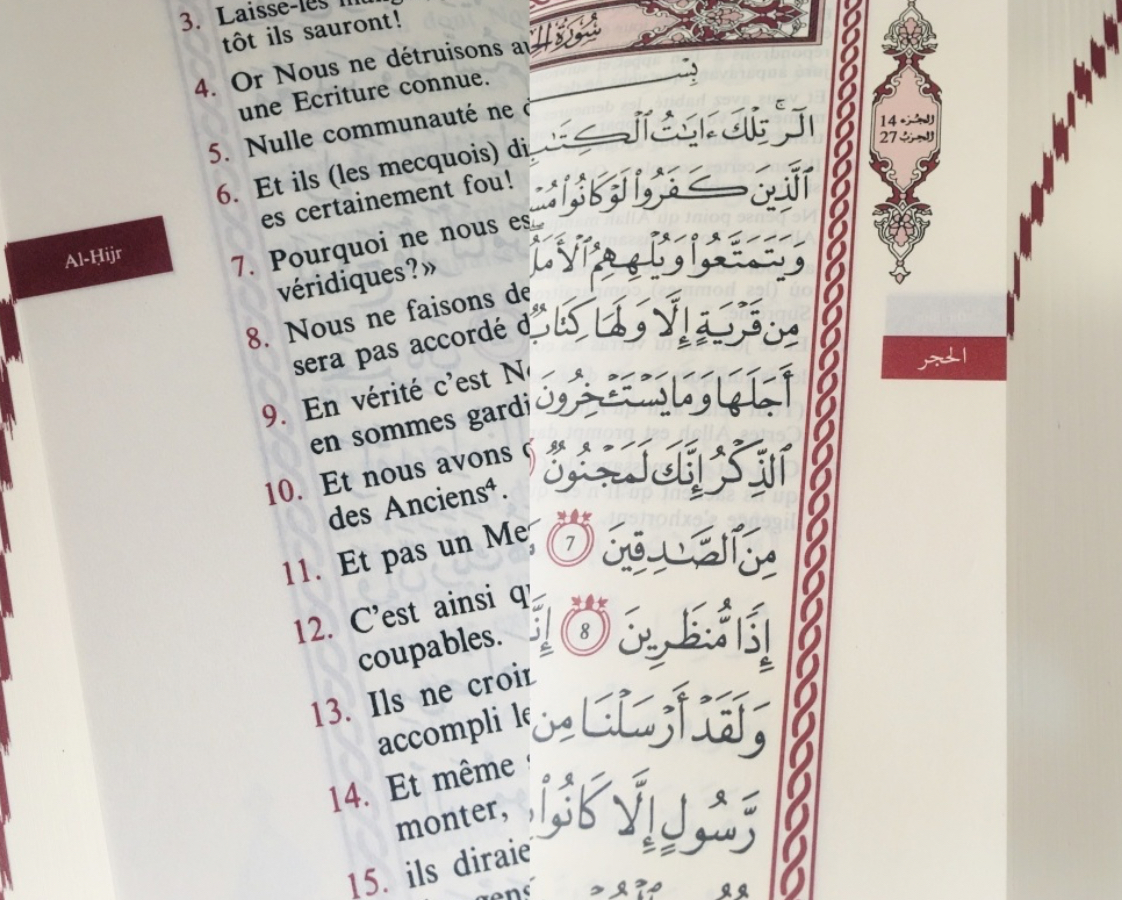 Al-Ḥijr
3. Laisse-les
tôt ils sauront!
4. Or Nous ne détruisons
une Ecriture connue.
5. Nulle communauté ne
6. Et ils (les mecquois)
es certainement fou!
7. Pourquoi ne nous
véridiques?»
8. Nous ne faisons
sera pas accordé
9. En vérité c'est
en sommes
10. Et nous avons
des Anciens⁴.
11. Et pas un
12. C'est ainsi
coupables.
13. Ils ne
accompli
14. Et même
monter,
15. ils
سُورَةُ
الٓرۚ تِلْكَ ءَايَٰتُ ٱلْكِتَٰبِ
ٱلَّذِينَ كَفَرُوا۟ لَوْ كَانُوا۟
وَيَتَمَتَّعُوا۟ وَيُلْهِهِمُ ٱلْأَمَلُ
مِن قَرْيَةٍ إِلَّا وَلَهَا كِتَابٌ
أَجَلَهَا وَمَا يَسْتَـْٔخِرُونَ
ٱلذِّكْرُ إِنَّكَ لَمَجْنُونٌ
مِنَ ٱلصَّٰدِقِينَ 7
إِذًا مُّنظَرِينَ 8 إِنَّا
وَلَقَدْ أَرْسَلْنَا مِن
رَّسُولٍ إِلَّا كَانُوا۟
الجزء 14
الحزب 27
الحجر